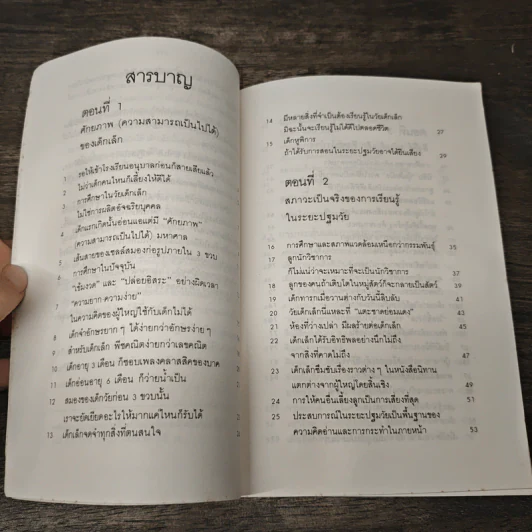 สารบาญ
ตอนที่ 1
ศักยภาพ (ความสามารถเป็นไปได้)
ของเด็กเล็ก
1 รอให้เข้าโรงเรียนอนุบาลก่อนก็สายเสียแล้ว
2 ไม่ว่าเด็กคนไหนก็เลี้ยงให้ดีได้
3 การศึกษาในวัยเด็กเล็ก
ไม่ใช่การผลิตอัจฉริยบุคคล
เด็กแรกเกิดนั้นอ่อนแอแต่มี "ศักยภาพ"
(ความสามารถเป็นไปได้) มหาศาล
เส้นสายของเซลล์สมองก่อรูปภายใน 3 ขวบ
6 การศึกษาในปัจจุบัน
"เข้มงวด" และ "ปล่อยอิสระ" อย่างผิดเวลา
7 "ความยาก-ความง่าย"
ในความคิดของผู้ใหญ่ใช้กับเด็กไม่ได้
8 เด็กจำอักษรยาก ๆ ได้ง่ายกว่าอักษรง่าย ๆ
9 สำหรับเด็กเล็ก พีชคณิตง่ายกว่าเลขคณิต
10 เด็กอายุ 3 เดือน ก็ชอบเพลงคลาสสิคของบาค
11 เด็กอ่อนอายุ 6 เดือน ก็ว่ายน้ำเป็น
12 สมองของเด็กวัยก่อน 3 ขวบนั้น
เราจะยัดเยียดอะไรให้มากแค่ไหนก็รับได้
13 เด็กเล็กจดจำทุกสิ่งที่ตนสนใจ
14 มีหลายสิ่งที่จำเป็นต้องเรียนรู้ในวัยเด็กเล็ก
มิฉะนั้นจะเรียนรู้ไม่ได้ดีไปตลอดชีวิต 27
15 เด็กหูพิการ
ถ้าได้รับการสอนในระยะปฐมวัยอาจได้ยินเสียง 29
ตอนที่ 2
สภาวะเป็นจริงของการเรียนรู้
ในระยะปฐมวัย
16 การศึกษาและสภาพแวดล้อมเหนือกว่ากรรมพันธุ์ 35
17 ลูกนักวิชาการ
ก็ไม่แน่ว่าจะเหมาะที่จะเป็นนักวิชาการ 37
18 ลูกของคนถ้าเติบโตในหมู่สัตว์ก็จะกลายเป็นสัตว์ 39
19 เด็กทารกเมื่อวานต่างกับวันนี้ลิบลับ 41
20 วัยเด็กเล็กนี้แหละที่ "แตะชาดย่อมแดง" 43
21 ห้องที่ว่างเปล่า มีผลร้ายต่อเด็กเล็ก 45
22 เด็กเล็กได้รับอิทธิพลอย่างนึกไม่ถึง
จากสิ่งที่คาดไม่ถึง 47
23 เด็กเล็กซึมซับเรื่องราวต่าง ๆ ในหนังสือนิทาน
แตกต่างจากผู้ใหญ่โดยสิ้นเชิง 49
24 การให้คนอื่นเลี้ยงลูกเป็นการเสี่ยงที่สุด 51
25 ประสบการณ์ในระยะปฐมวัยเป็นพื้นฐานของ
ความคิดอ่านและการกระทำในภายหน้า 53